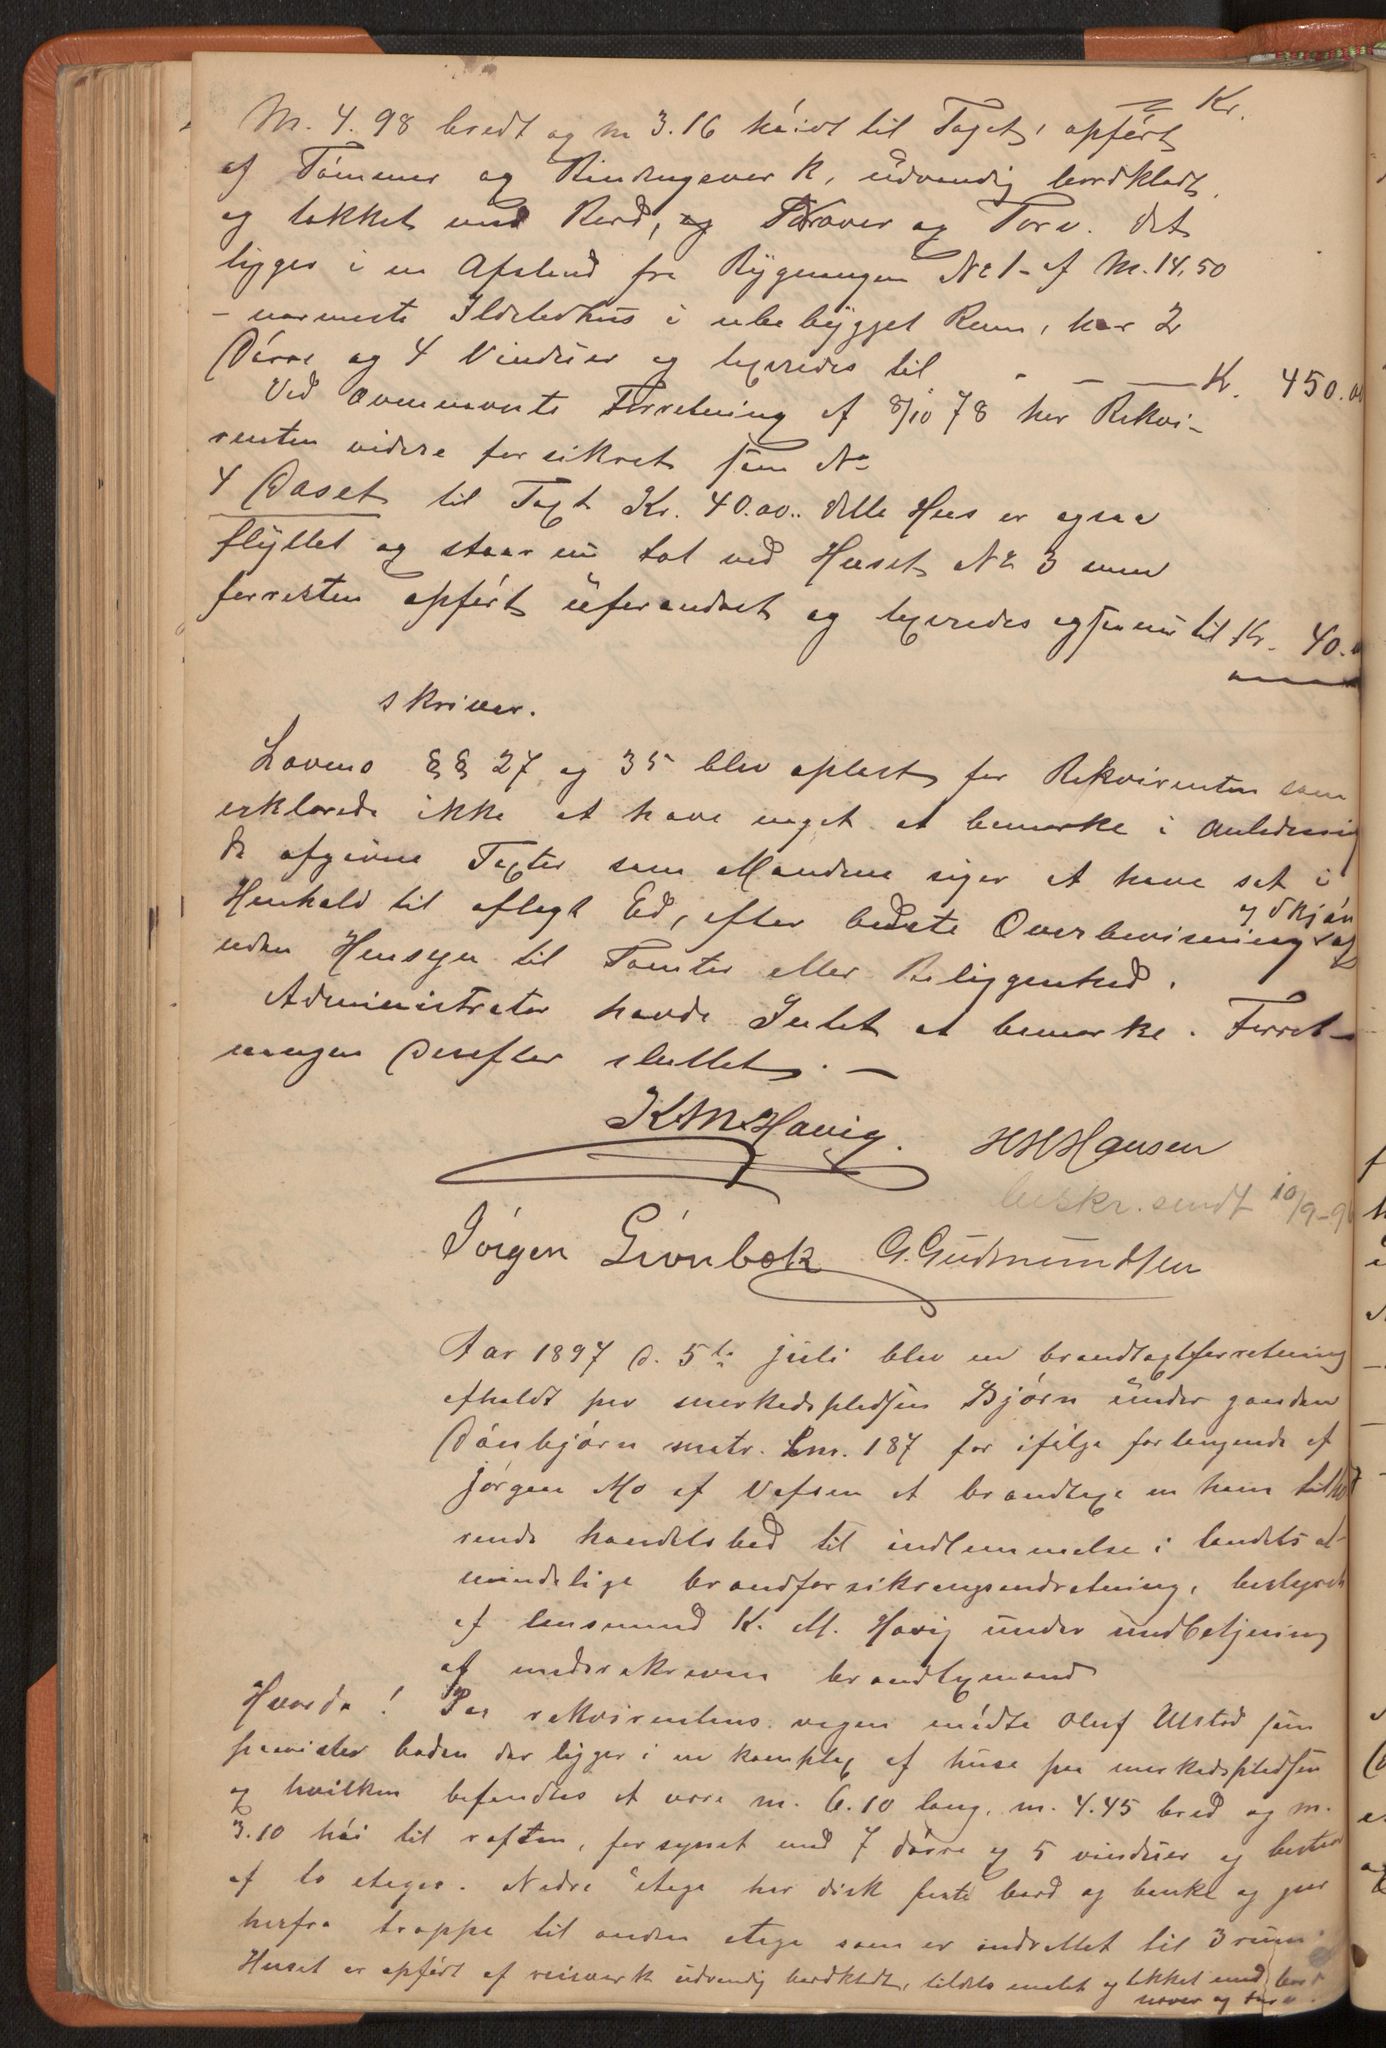 Kr.
M. 4.98 bredt og m 3.16 höidt til Taget, opfört
af Tömmer og Bindingsverk, udvendig bordklædt,
og tækket med Bord, og Næver og Torv. det
ligger i en Afstand fra Bygningen No 1 af M. 14,50
- nærmeste Ildstedhus i ubebygget Rum, har 2
Dörre og 4 Vinduer og taxeredes til - - — Kr. 450.00
Ved ovennævnte Forretning af 8/10 78 har Rekvi-
renten videre forsikret som No
4 Baset til Taxt Kr. 40.00.. dette Hus er ogsaa
flyttet og staar nu tæt ved Huset No 3 men
forresten opfört uforandret og taxeredes ogsaa nu til Kr. 40.
skriver.
Lovens §§ 27 og 35 blev oplæst for Rekvirenten som
erklærede ikke at have noget at bemærke i Anledning
de afgivne Taxter som Mændene siger at have sat i
Henhold til aflagt Ed, efter bedste Overbevisning og Skjön og
uden Hensyn til Tomter eller Beliggenhed.
Administrator havde Intet at bemærke. Forret-
ningen Derefter sluttet. —
K M Havig. H H Hansen
beskr. sendt 10/9-9
Jörgen Grönbæk G. Gudmundsen
Aar 1897 d. 5te juli blev en brandtaxtforretning
afholdt paa markedspladsen Bjørn under gaarden
Dönbjörn matr. lnr. 187 for ifölge forlangende af
Jørgen Mo af Vefsen at brandtaxe en ham tilhö
rende handelsbod til indlemmelse i landets al-
mindelige brandforsikringsindretning, bestyret
af lensmand K. M. Havig under medbetjening
af underskrevne brandtaxmænd
Hvorda! Paa rekvirentens vegne mödte Oluf Ulstad som
paaviste boden der ligger i en komplex af huse paa markedspladsen
og hvilken befandtes at være m. 6.10 lang, m. 4.45 bred og m.
3.10 höi til raften, forsynet med 7 dörre og 5 vinduer og bestaar
af to etager. Nedre etage har disk faste bord og bænke og gaar
herfra trappe til anden etage som er indrettet til 3 rum.
Huset er opfört af reisverk udvendig bordklædt, tildels malet og tækket med bord
næver og torv.